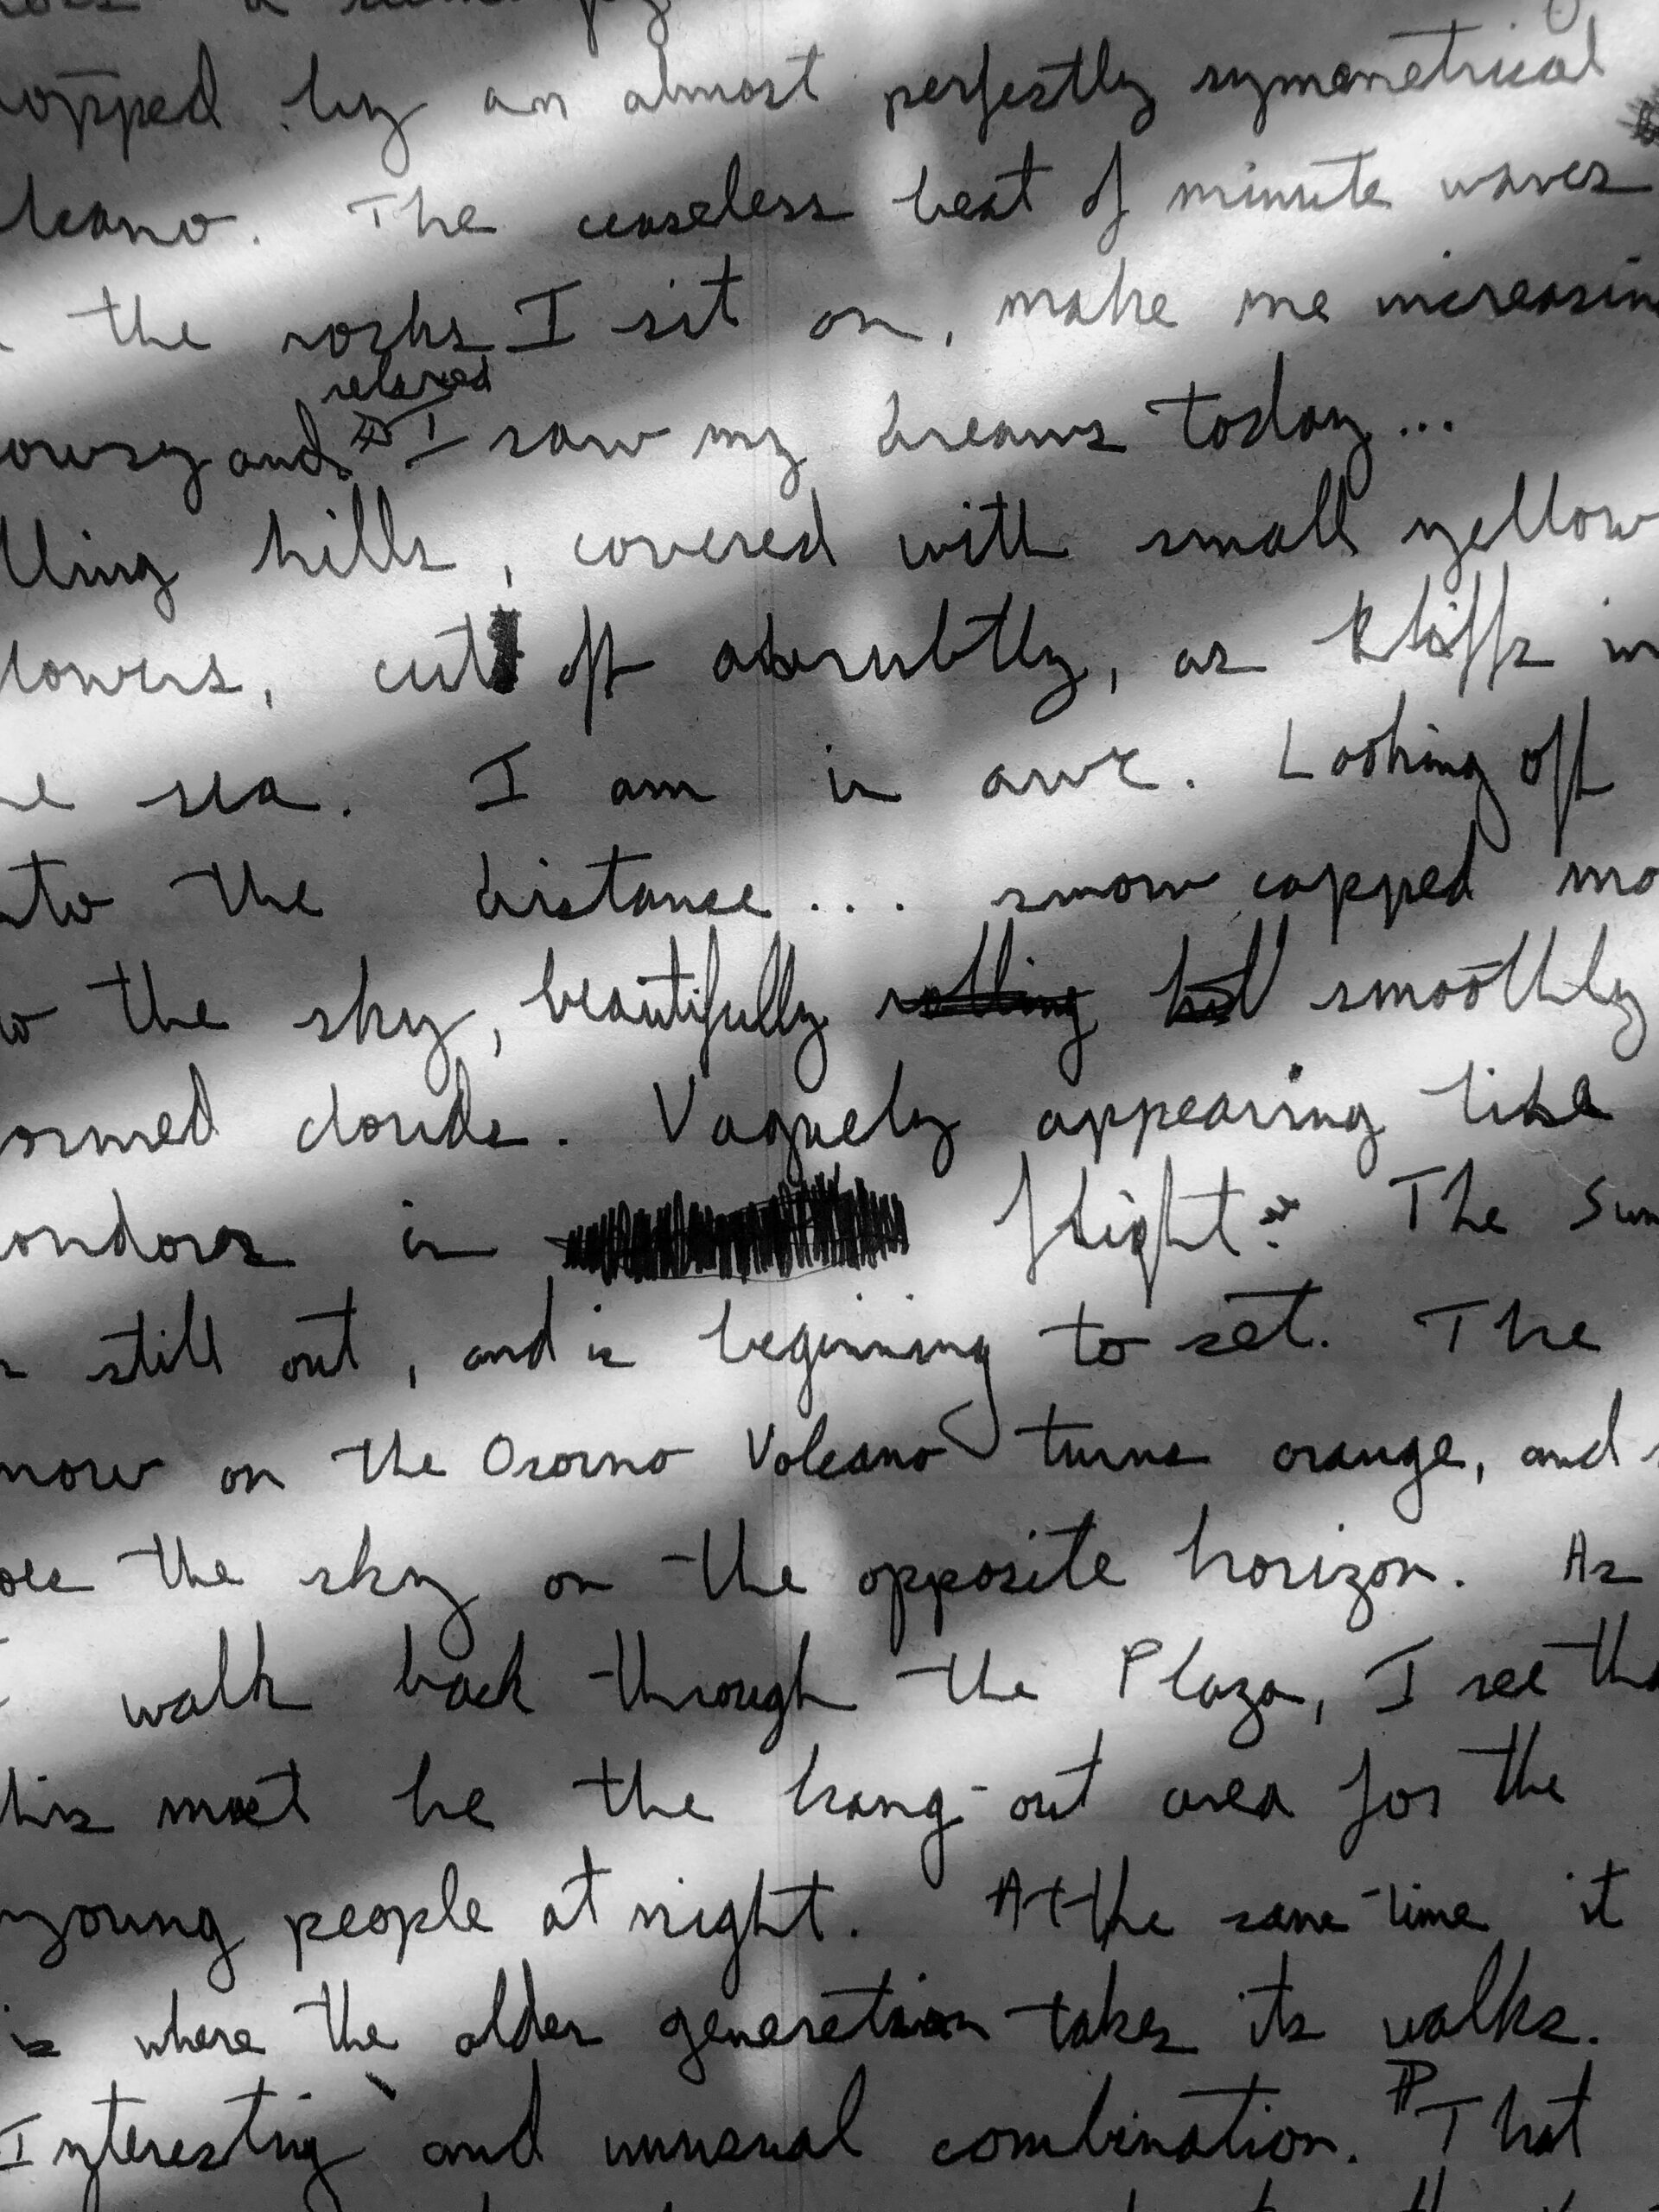 opped by an almost perfectly symmetrical
lcano. The ceaseless beat of minute waves
the rocks I sit on, make me increasin
relaxed
owsy and I saw my dreams today...
lling hills, covered with small yellow
lowers, cut off abrubtly, as kliffs in
he sea. I am in awe. Looking off
nto the distance... snow capped mo
o the sky, beautifully rolling hill smoothly
ormed clouds. Vaguely appearing like
ondors in flight. The Sun
still out, and is beginning to set. The
now on the Osorno Volcano turns orange, and
oes the sky on the opposite horizon. As
I walk back through the Plaza, I see tha
his must be the hang-out area for the
young people at night. At the same time it
is where the older generation takes its walks.
Interesting and unusual combination. That